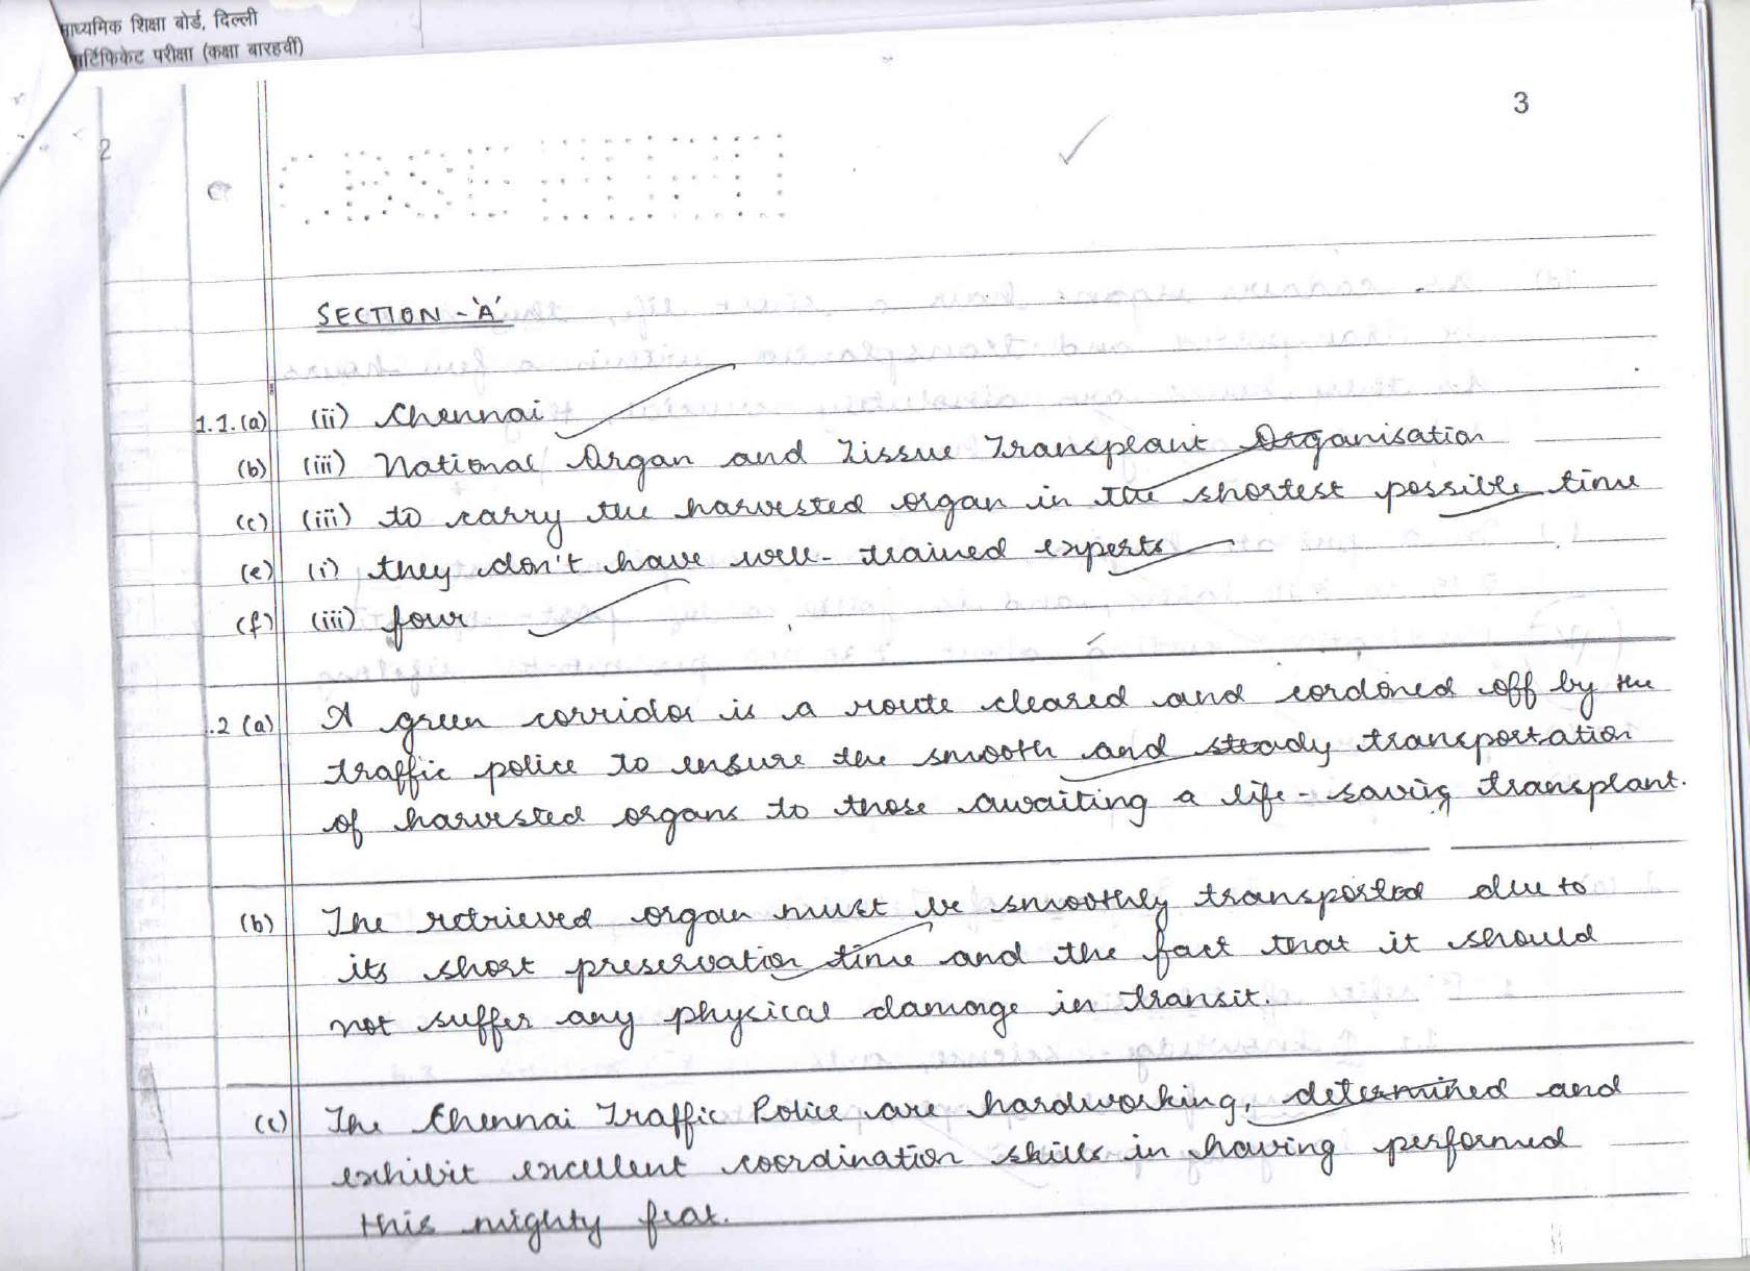 माध्यमिक शिक्षा बोर्ड, दिल्ली
सर्टिफिकेट परीक्षा (कक्षा बारहवीं)
3
2
CBSE
SECTION - 'A'
1.1.(a) (ii) Chennai
(b) (iii) National Organ and Tissue Transplant Organisation
(c) (iii) to carry the harvested organ in the shortest possible time
(e) (i) they don't have well-trained experts
(f) (iii) four
.2 (a) A green corridor is a route cleared and cordoned off by the
traffic police to ensure the smooth and steady transportation
of harvested organs to those awaiting a life-saving transplant.
(b) The retrieved organ must be smoothly transported due to
its short preservation time and the fact that it should
not suffer any physical damage in transit.
(c) The Chennai Traffic Police are hardworking, determined and
exhibit excellent coordination skills in having performed
this mighty feat.